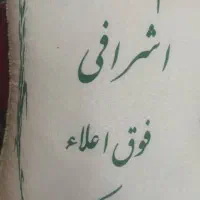 اشرافی
فوق اعلاء